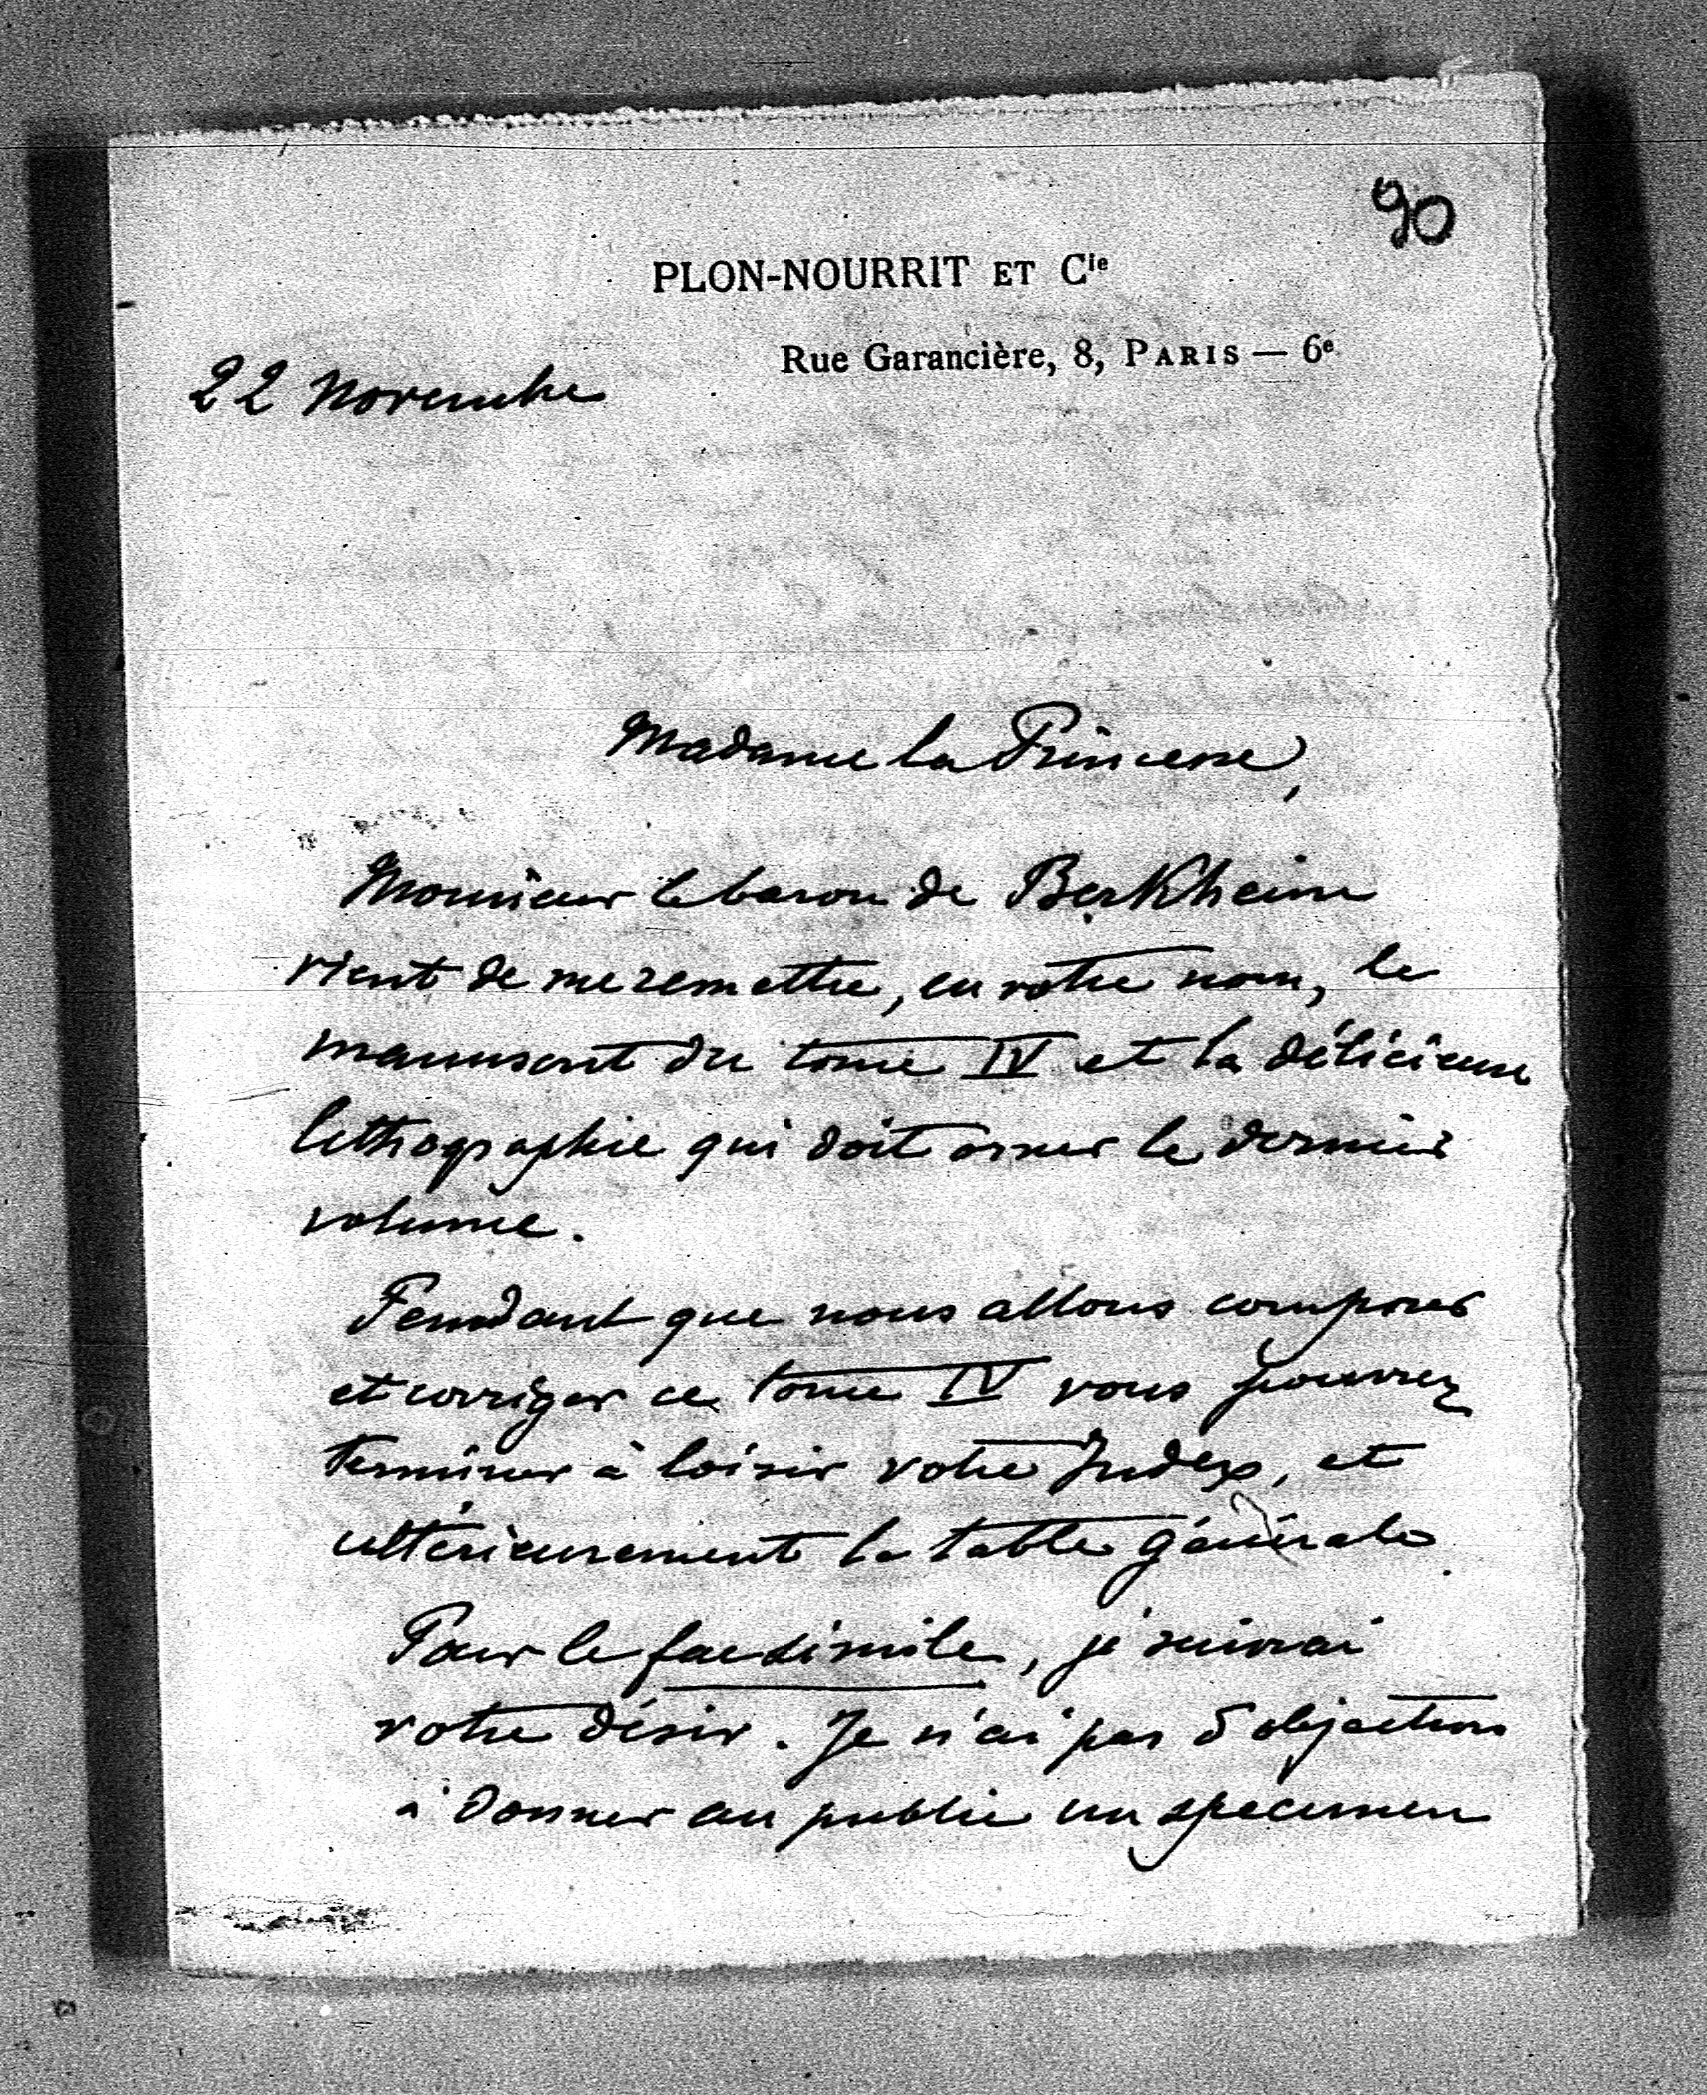 90
PLON-NOURRIT ET Cie
Rue Garancière, 8, PARIS — 6e
22 novembre
Madame la Princesse,
Monsieur le baron de Berkheim
vient de me remettre, en votre nom, le
manuscrit du tome IV et la délicieuse
lithographie qui doit orner le dernier
volume.
Pendant que nous allons composer
et corriger ce tome IV vous pouvez
terminer à loisir votre Index, et
ultérieurement la table générale.
Pour le facsimile, je suivrai
votre désir. Je n'ai pas d'objections
à donner au public un specimen